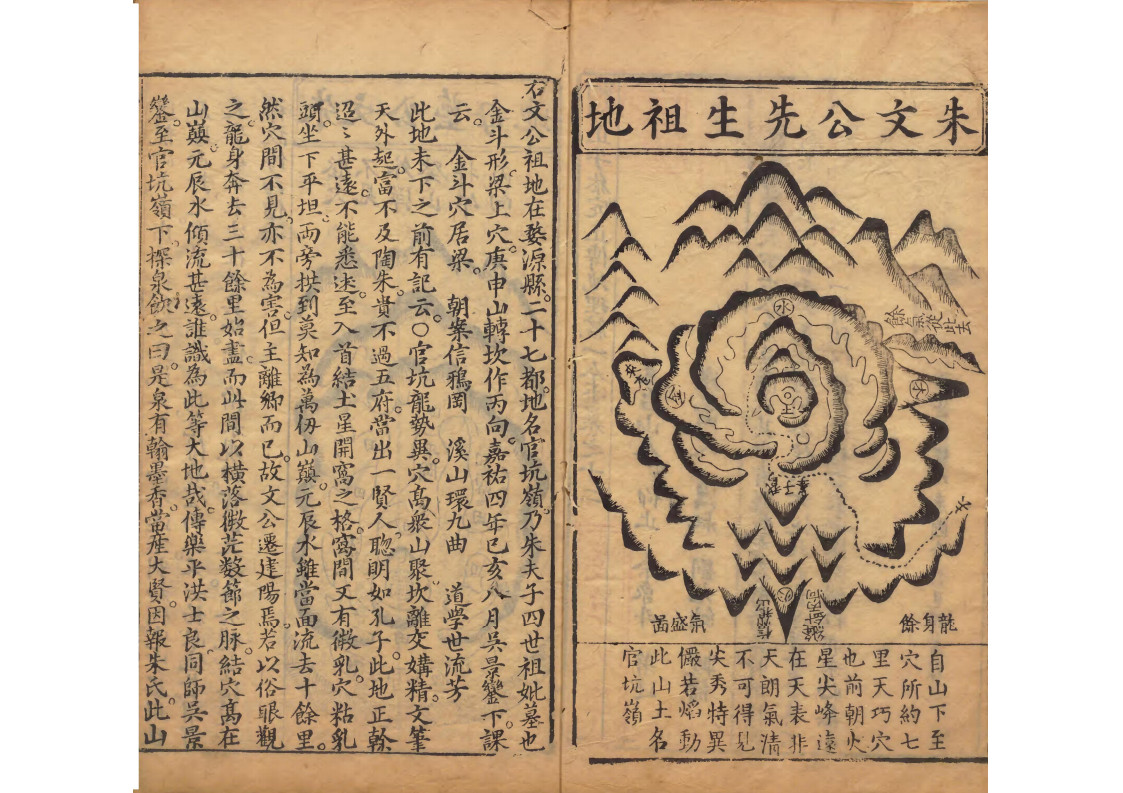 朱文公先生祖地
水
餘氣從此去
木
金
土
火
龍身餘
氣盛
自山下至
穴所約七
里天巧穴
也前朝火
星尖峰遠
在天表非
天朗氣清
不可得見
尖秀特異
儼若熖動
此山土名
官坑嶺
右文公祖地在婺源縣。二十七都。地名官坑嶺。乃朱夫子四世祖妣墓也
金斗形。梁上穴。庚申山轉坎作丙向。嘉祐四年己亥八月吳景鑾下。課
云。　金斗穴居梁。　朝案信鴉岡　溪山環九曲　道學世流芳
此地未下之前有記云。〇官坑龍勢異。穴高衆山聚。坎離交媾精。文筆
天外起。富不及陶朱。貴不過五府。當出一賢人。聰明如孔子。此地正榦
迢〻甚遠。不能悉述。至入首結土星開窩之格。窩間又有微乳。穴粘乳
頭。坐下平坦。两旁拱到莫知為萬仞山巔。元辰水雖當面流去十餘里。
然穴間不見。亦不為害。但主離鄉而已。故文公遷建陽焉。若以俗眼觀
之。龍身奔去三十餘里始盡。而此間以橫落微茫数節之脉。結穴高在
山巔。元辰水傾流甚遠。誰識為此等大地哉。傳樂平洪士良。同師吳景
鑾至官坑嶺下。探泉飲之曰。是泉有翰墨香。當産大賢。因報朱氏。此山